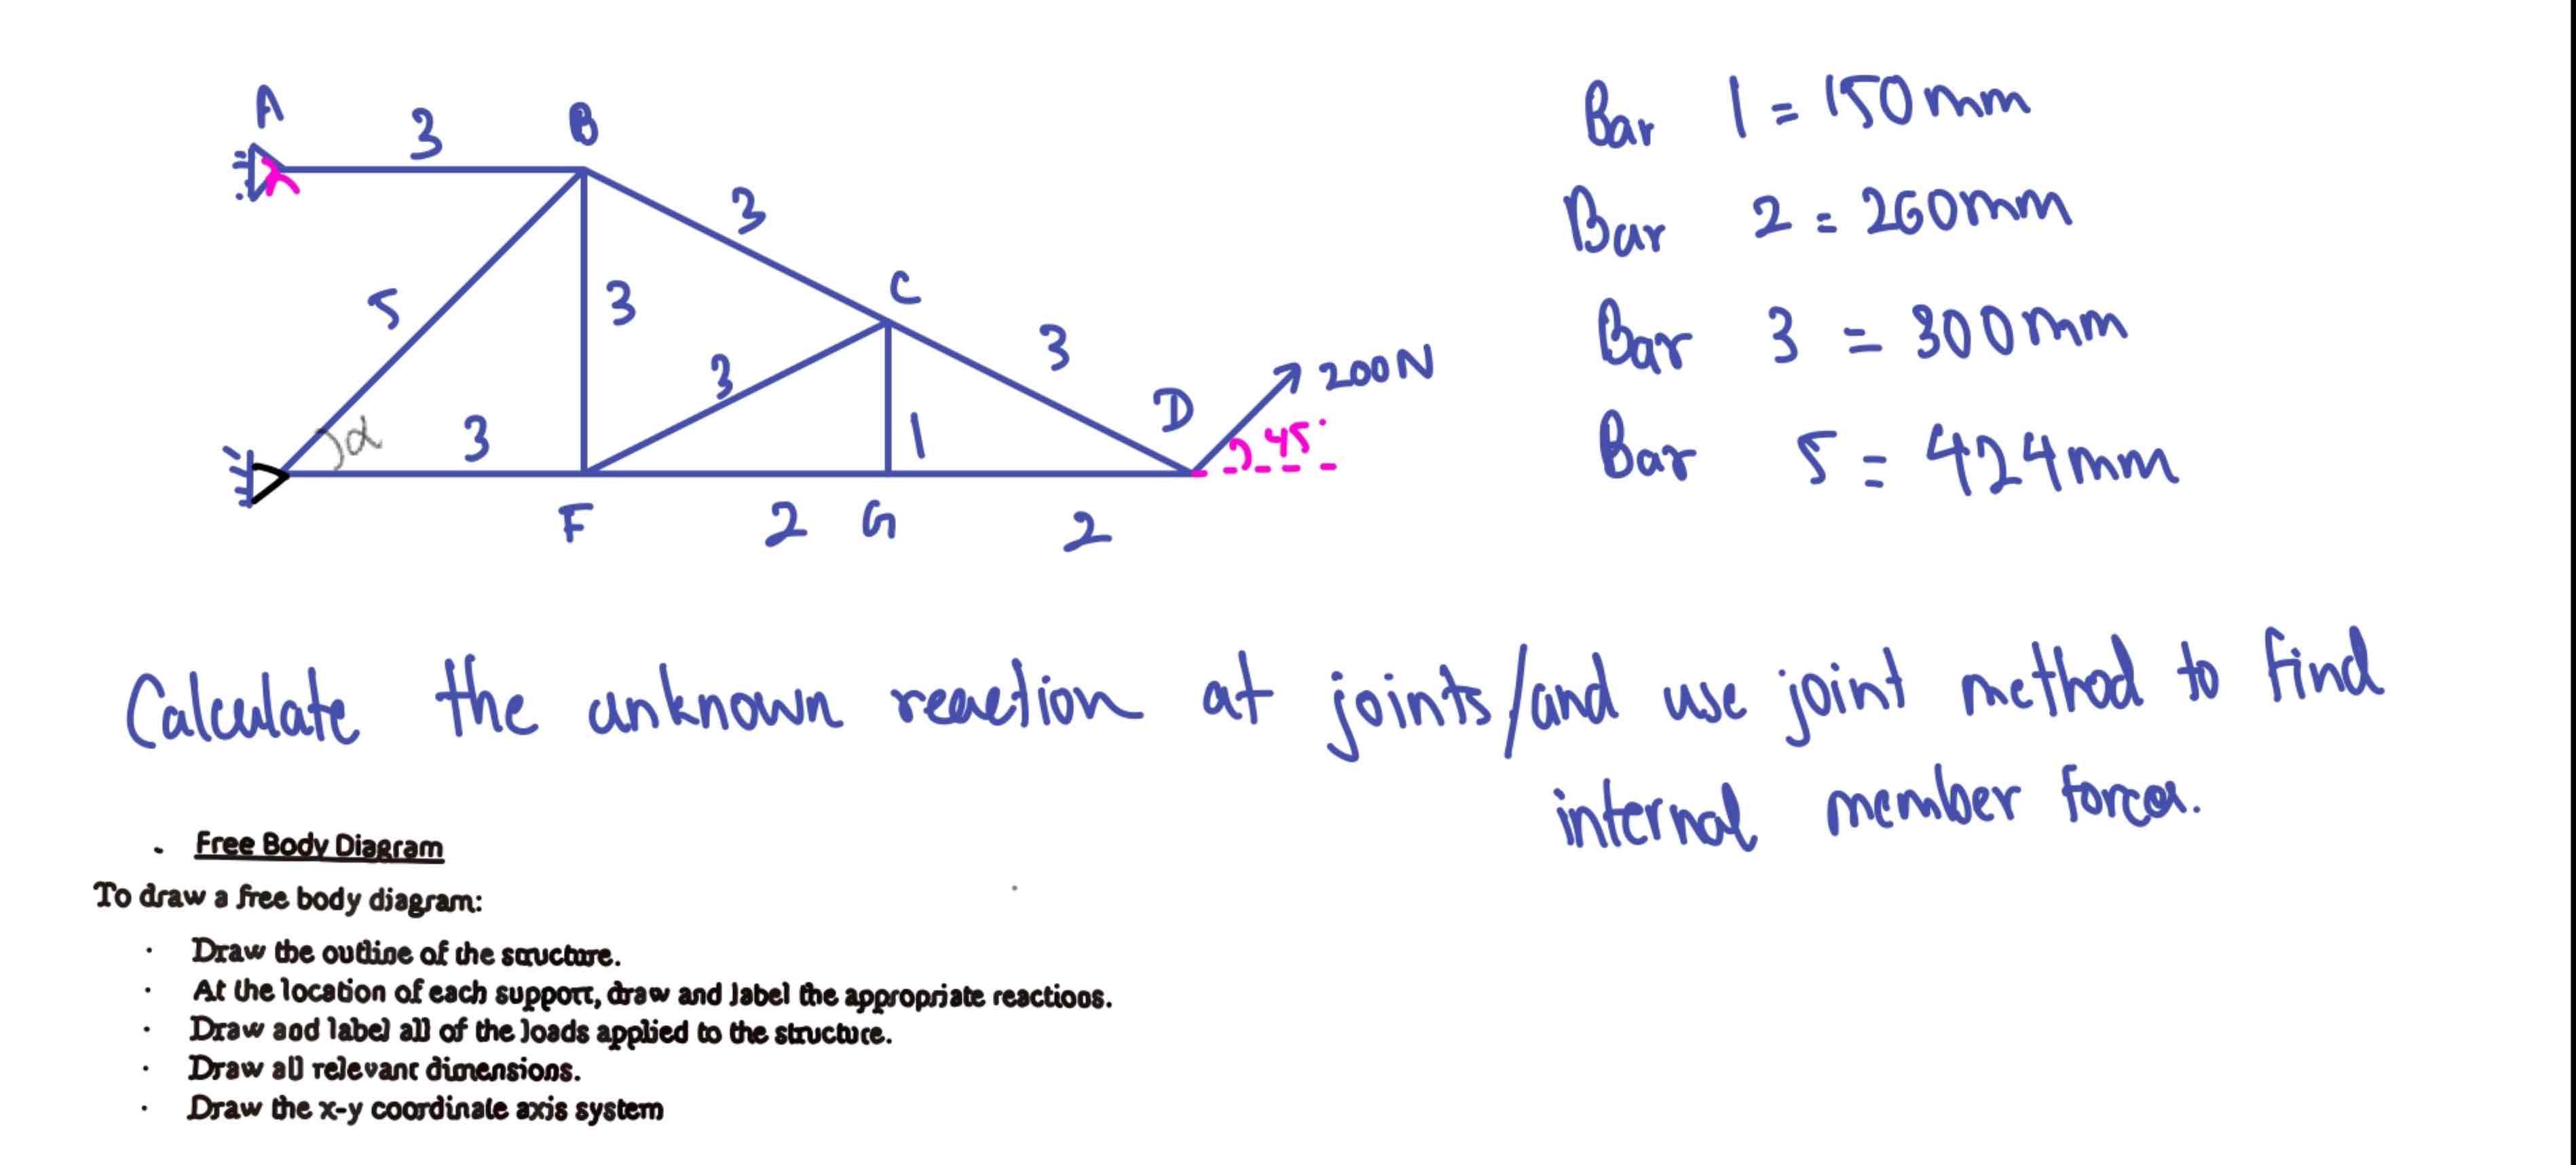 A
3
B
Bar 1 = 150mm
3
Bar 2 = 260mm
5
3
C
3
Bar 3 = 300mm
3
200N
D
45°
Bar 5 = 424mm
α
3
1
F
2
G
2
Calculate the unknown reaction at joints/and use joint method to find
internal member forces.
. Free Body Diagram
To draw a free body diagram:
· Draw the outline of the structure.
· At the location of each support, draw and label the appropriate reactions.
· Draw and label all of the loads applied to the structure.
· Draw all relevant dimensions.
· Draw the x-y coordinate axis system